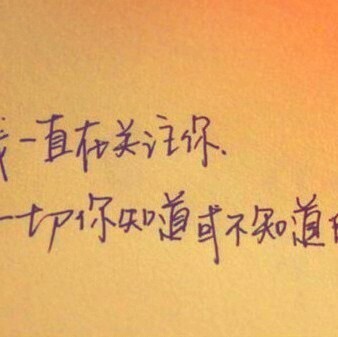 我一直在关注你.
一切你知道或不知道的